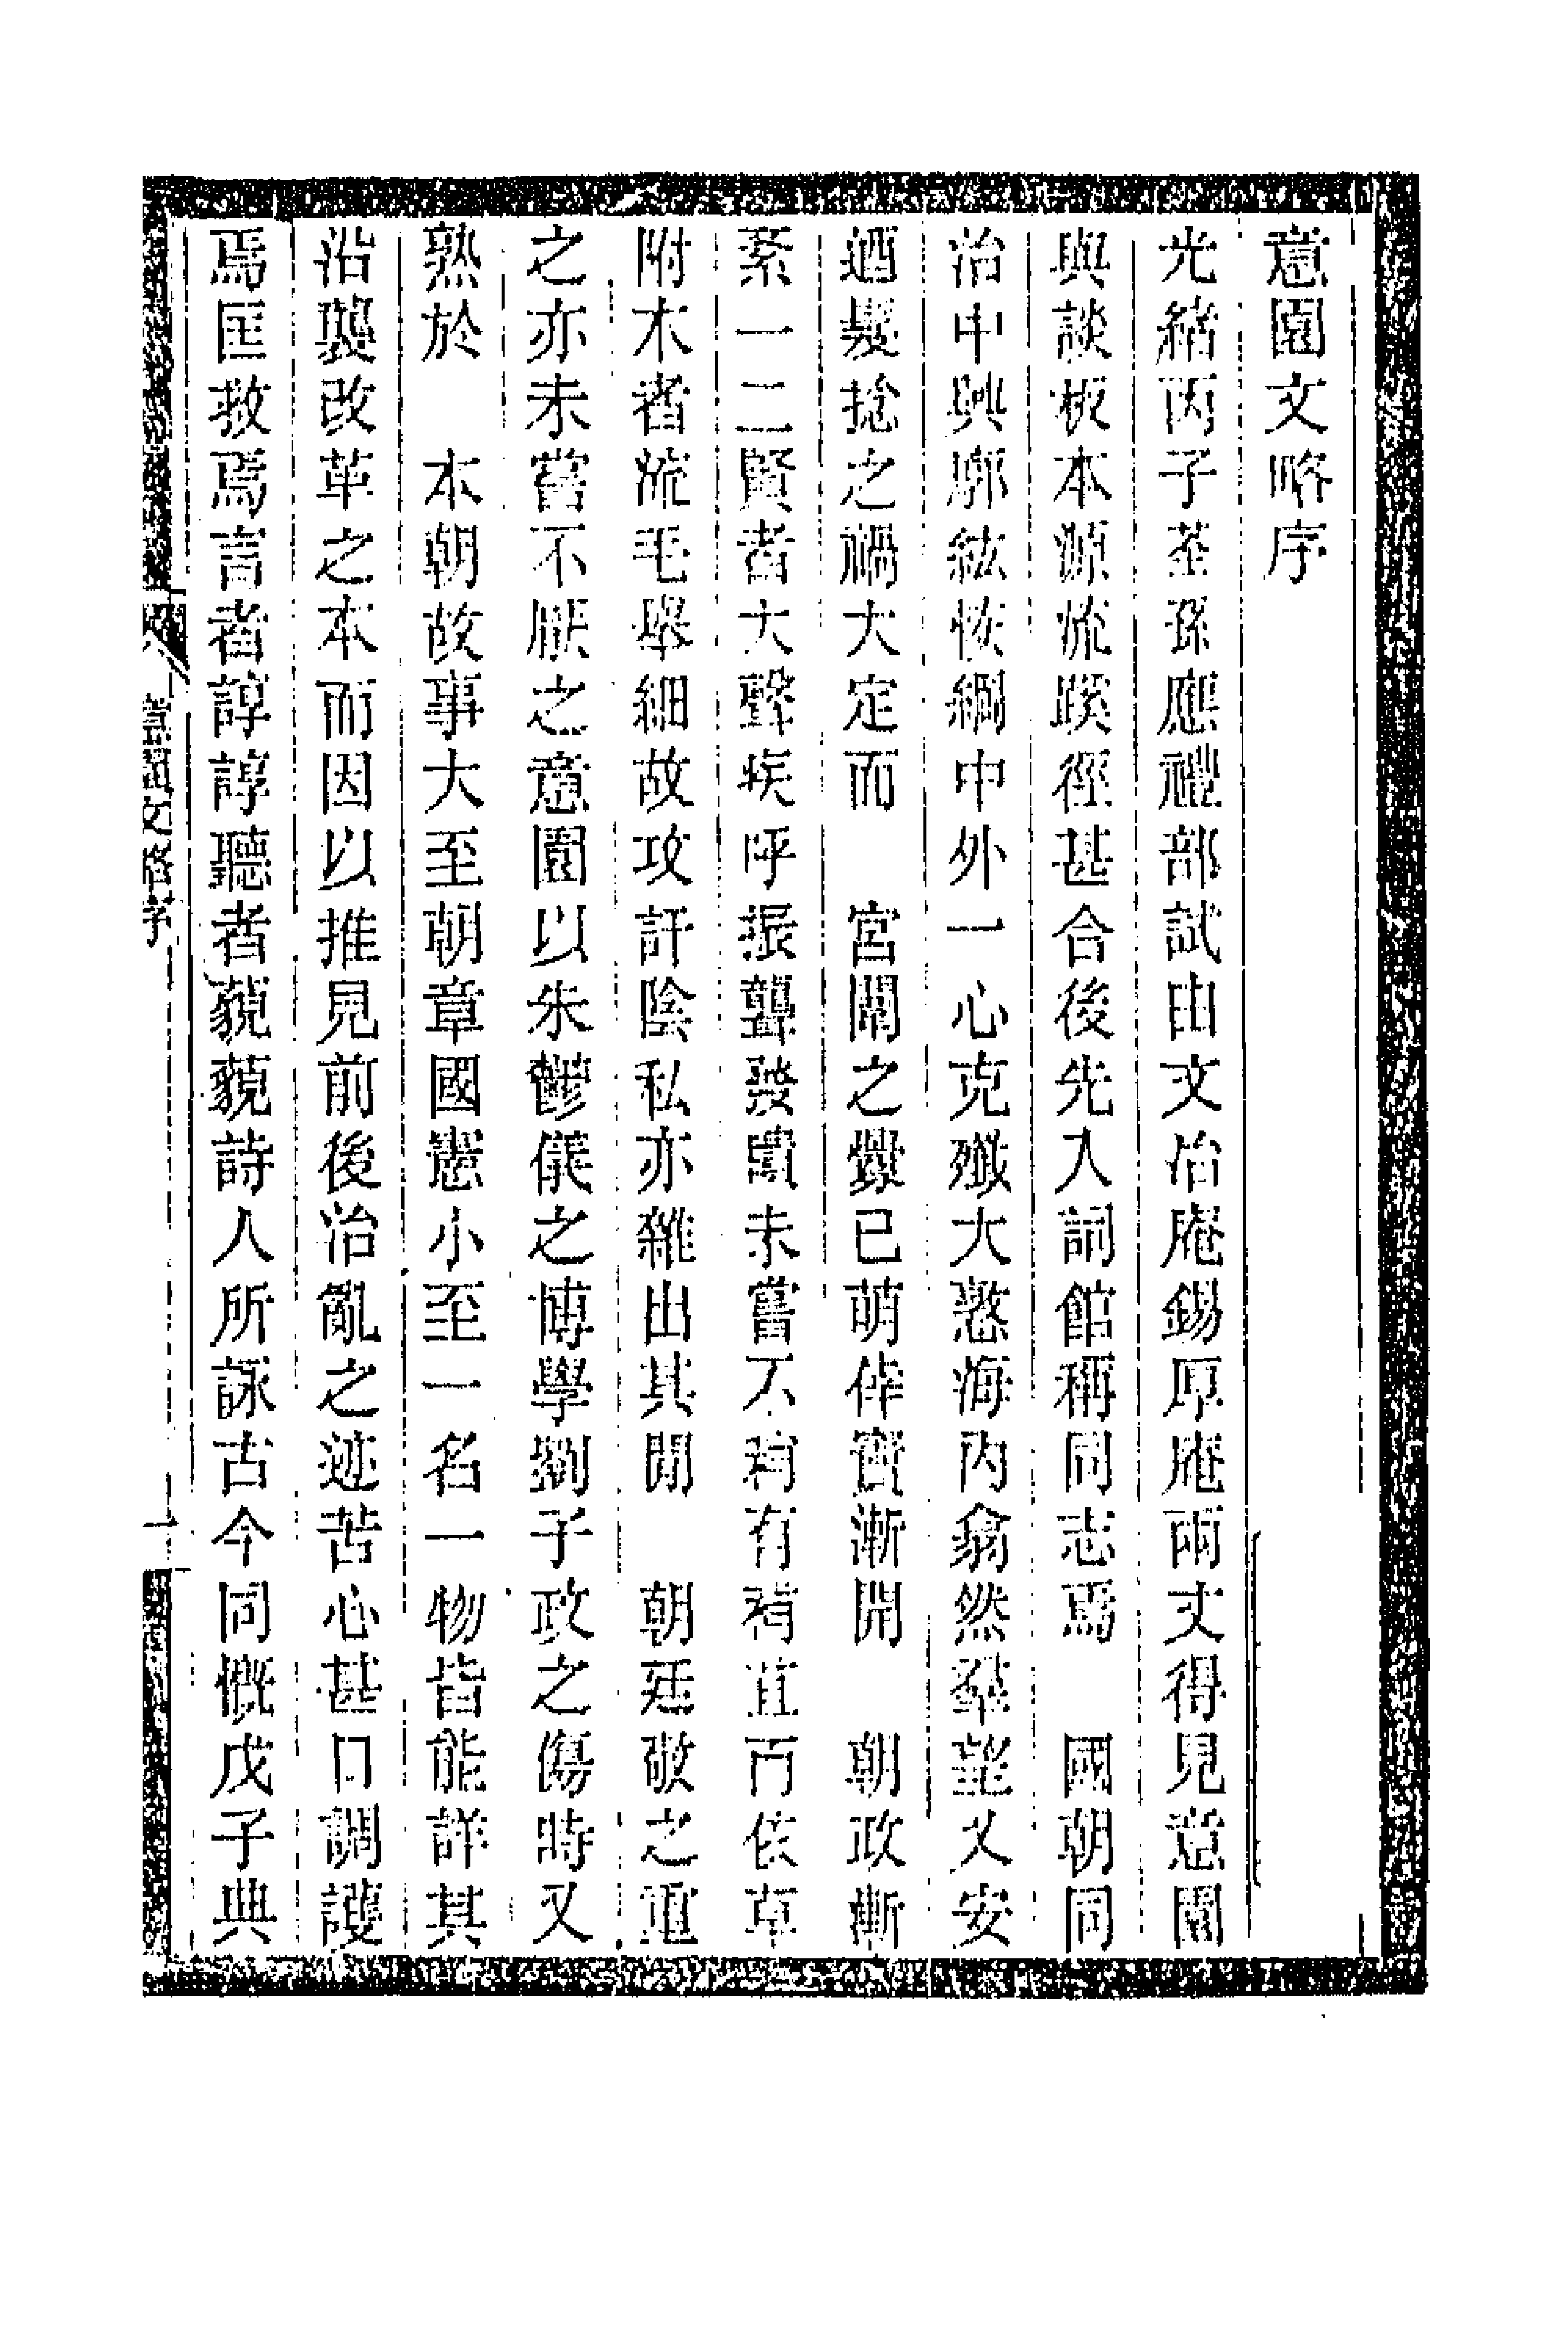 意園文略序
光緒丙子荃孫應禮部試由文冶庵錫厚庵兩丈得見意園
與談板本源流蹊徑甚合後先入詞館稱同志焉　國朝同
治中興廓紘恢綱中外一心克殲大憝海內翕然羣慫乂安
迺髮捻之禍大定而　宮闈之釁已萌倖竇漸開　朝政漸
紊一二賢者大聲疾呼振聾發聵未嘗不稍有裨直而依草
附木者流毛舉細故攻訐陰私亦雜出其閒　朝廷敬之重
之亦未嘗不厭之意園以朱鬱儀之博學劉子政之傷時又
熟於　本朝故事大至朝章國憲小至一名一物皆能詳其
沿襲改革之本而因以推見前後治亂之迹苦心甚口調護
焉匡救焉言者諄諄聽者藐藐詩人所詠古今同慨戊子典
意園文略序
一